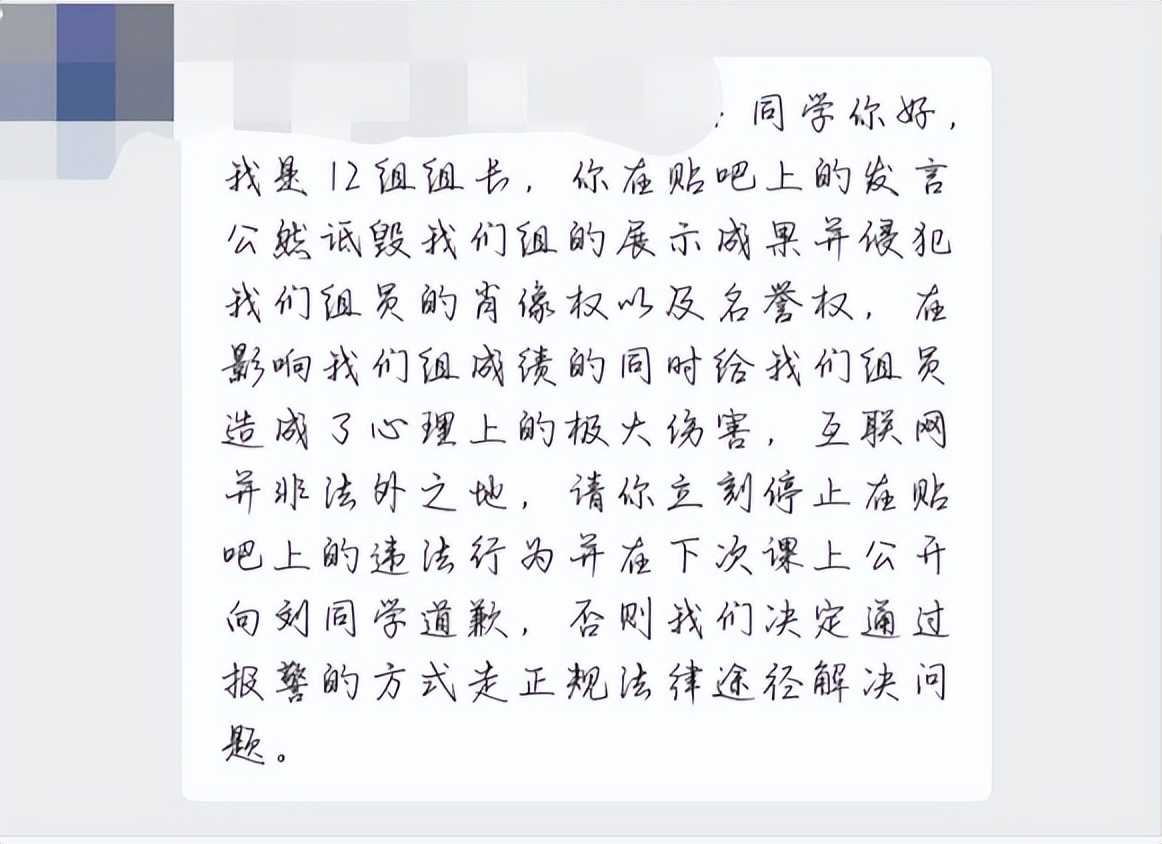 ：同学你好，
我是12组组长，你在贴吧上的发言
公然诋毁我们组的展示成果并侵犯
我们组员的肖像权以及名誉权，在
影响我们组成绩的同时给我们组员
造成了心理上的极大伤害，互联网
并非法外之地，请你立刻停止在贴
吧上的违法行为并在下次课上公开
向刘同学道歉，否则我们决定通过
报警的方式走正规法律途径解决问
题。